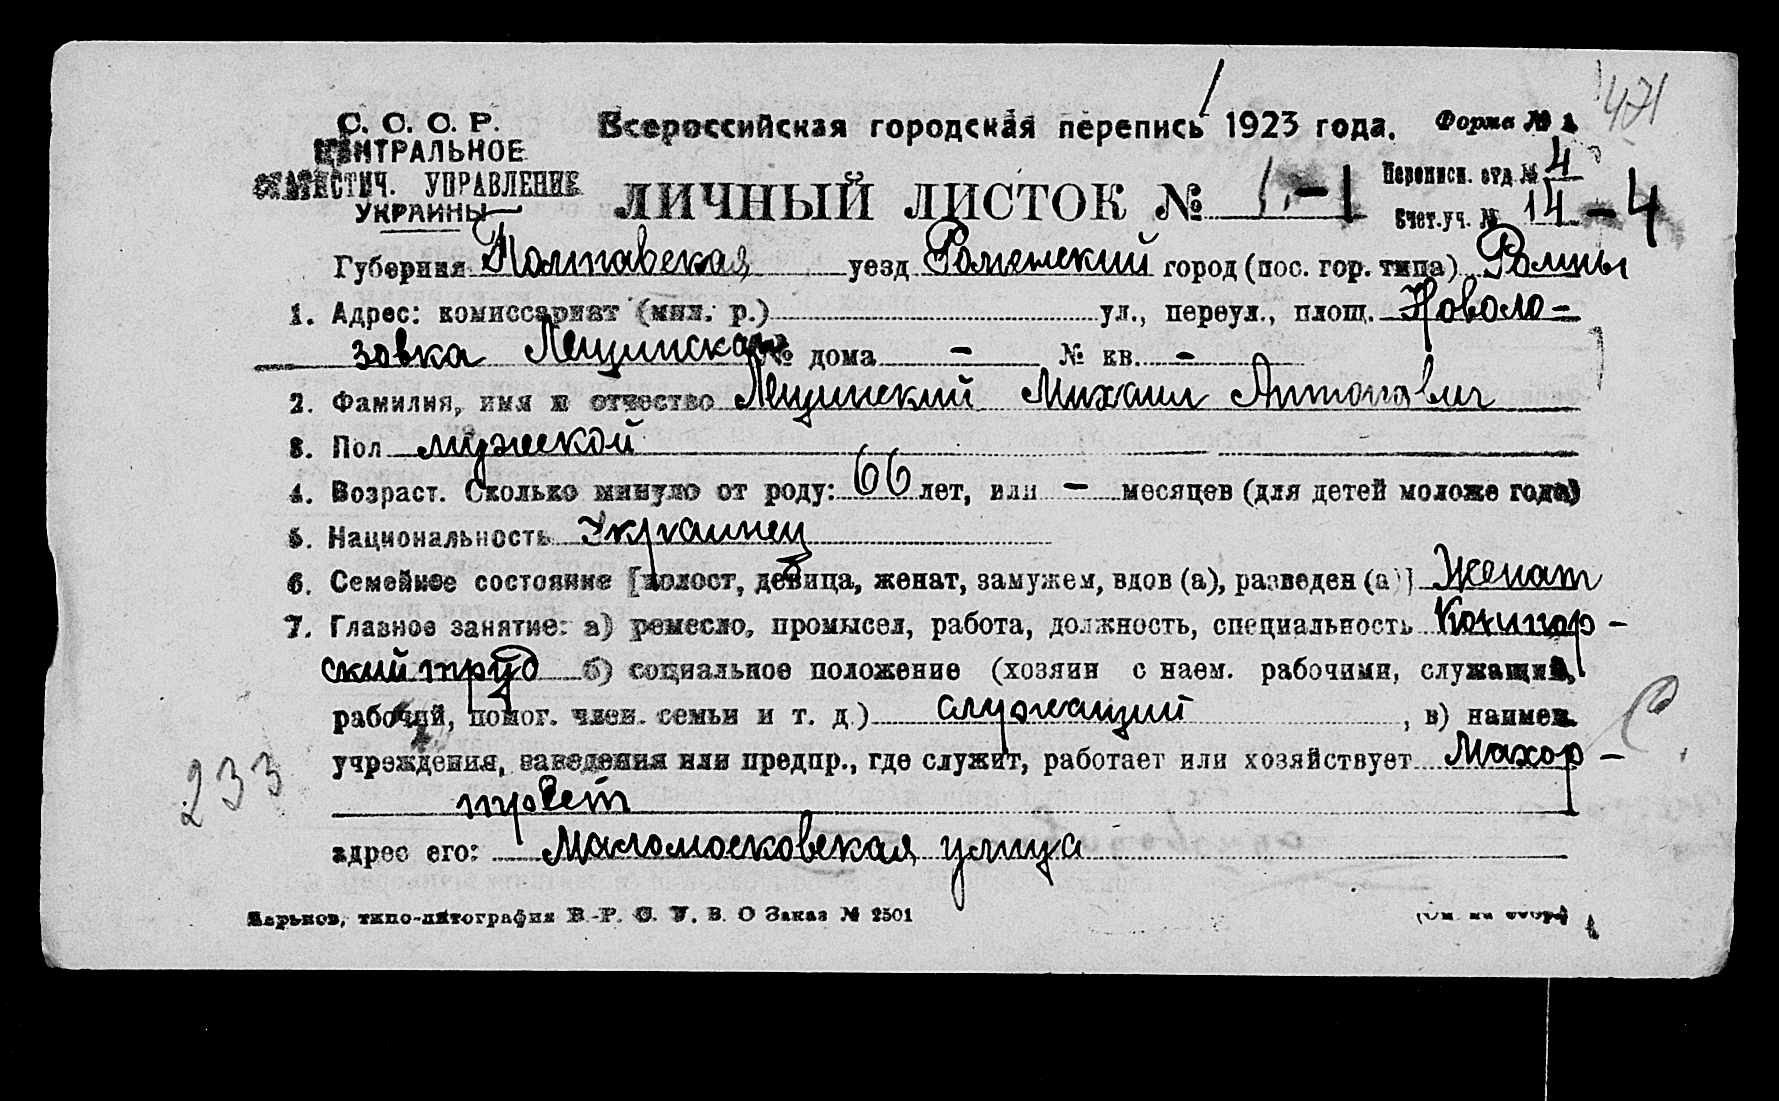 С. С. С. Р.
ЦЕНТРАЛЬНОЕ
СТАТИСТИЧ. УПРАВЛЕНИЕ
УКРАИНЫ
Всероссийская городская перепись 1923 года.
Форма № 1
471
ЛИЧНЫЙ ЛИСТОК № 1-1
Переписн. отд № 4
Счет.уч. № 14 - 4
Губерния Полтавская уезд Роменский город (пос. гор. типа) Ромны
1. Адрес: комиссариат (мил. р.) ул., переул., площ. Новоло-
зовка Лещинская № дома - № кв. -
2. Фамилия, имя и отчество Лещинский Михаил Антонович
3. Пол мужеской
4. Возраст. Сколько минуло от роду: 66 лет, или - месяцев (для детей моложе года)
5. Национальность Украинец
6. Семейное состояние [холост, девица, женат, замужем, вдов (а), разведен (а)] Женат
7. Главное занятие: а) ремесло, промысел, работа, должность, специальность Концтор-
ский труд б) социальное положение (хозяин с наем. рабочими, служащий,
рабочий, помог. член. семьи и т. д.) служащий, в) наимен.
учреждения, заведения или предпр., где служит, работает или хозяйствует Махор-
трест
233
адрес его: Маломосковская улица
Харьков, типо-литография В.-Р. С. У. В. О Заказ № 2501